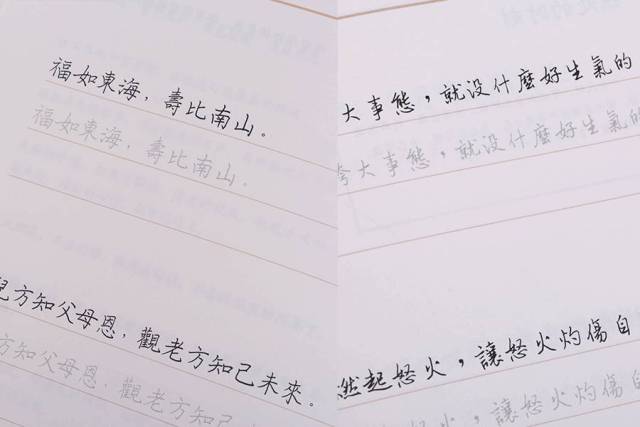 福如東海，壽比南山。
福如東海，壽比南山。
兒方知父母恩，觀老方知己未來。
方知父母恩，觀老方知己未來
大事態，就没什麼好生氣的
誇大事態，就没什麼好生氣的
燃起怒火，讓怒火灼傷自
起怒火，讓怒火灼傷自